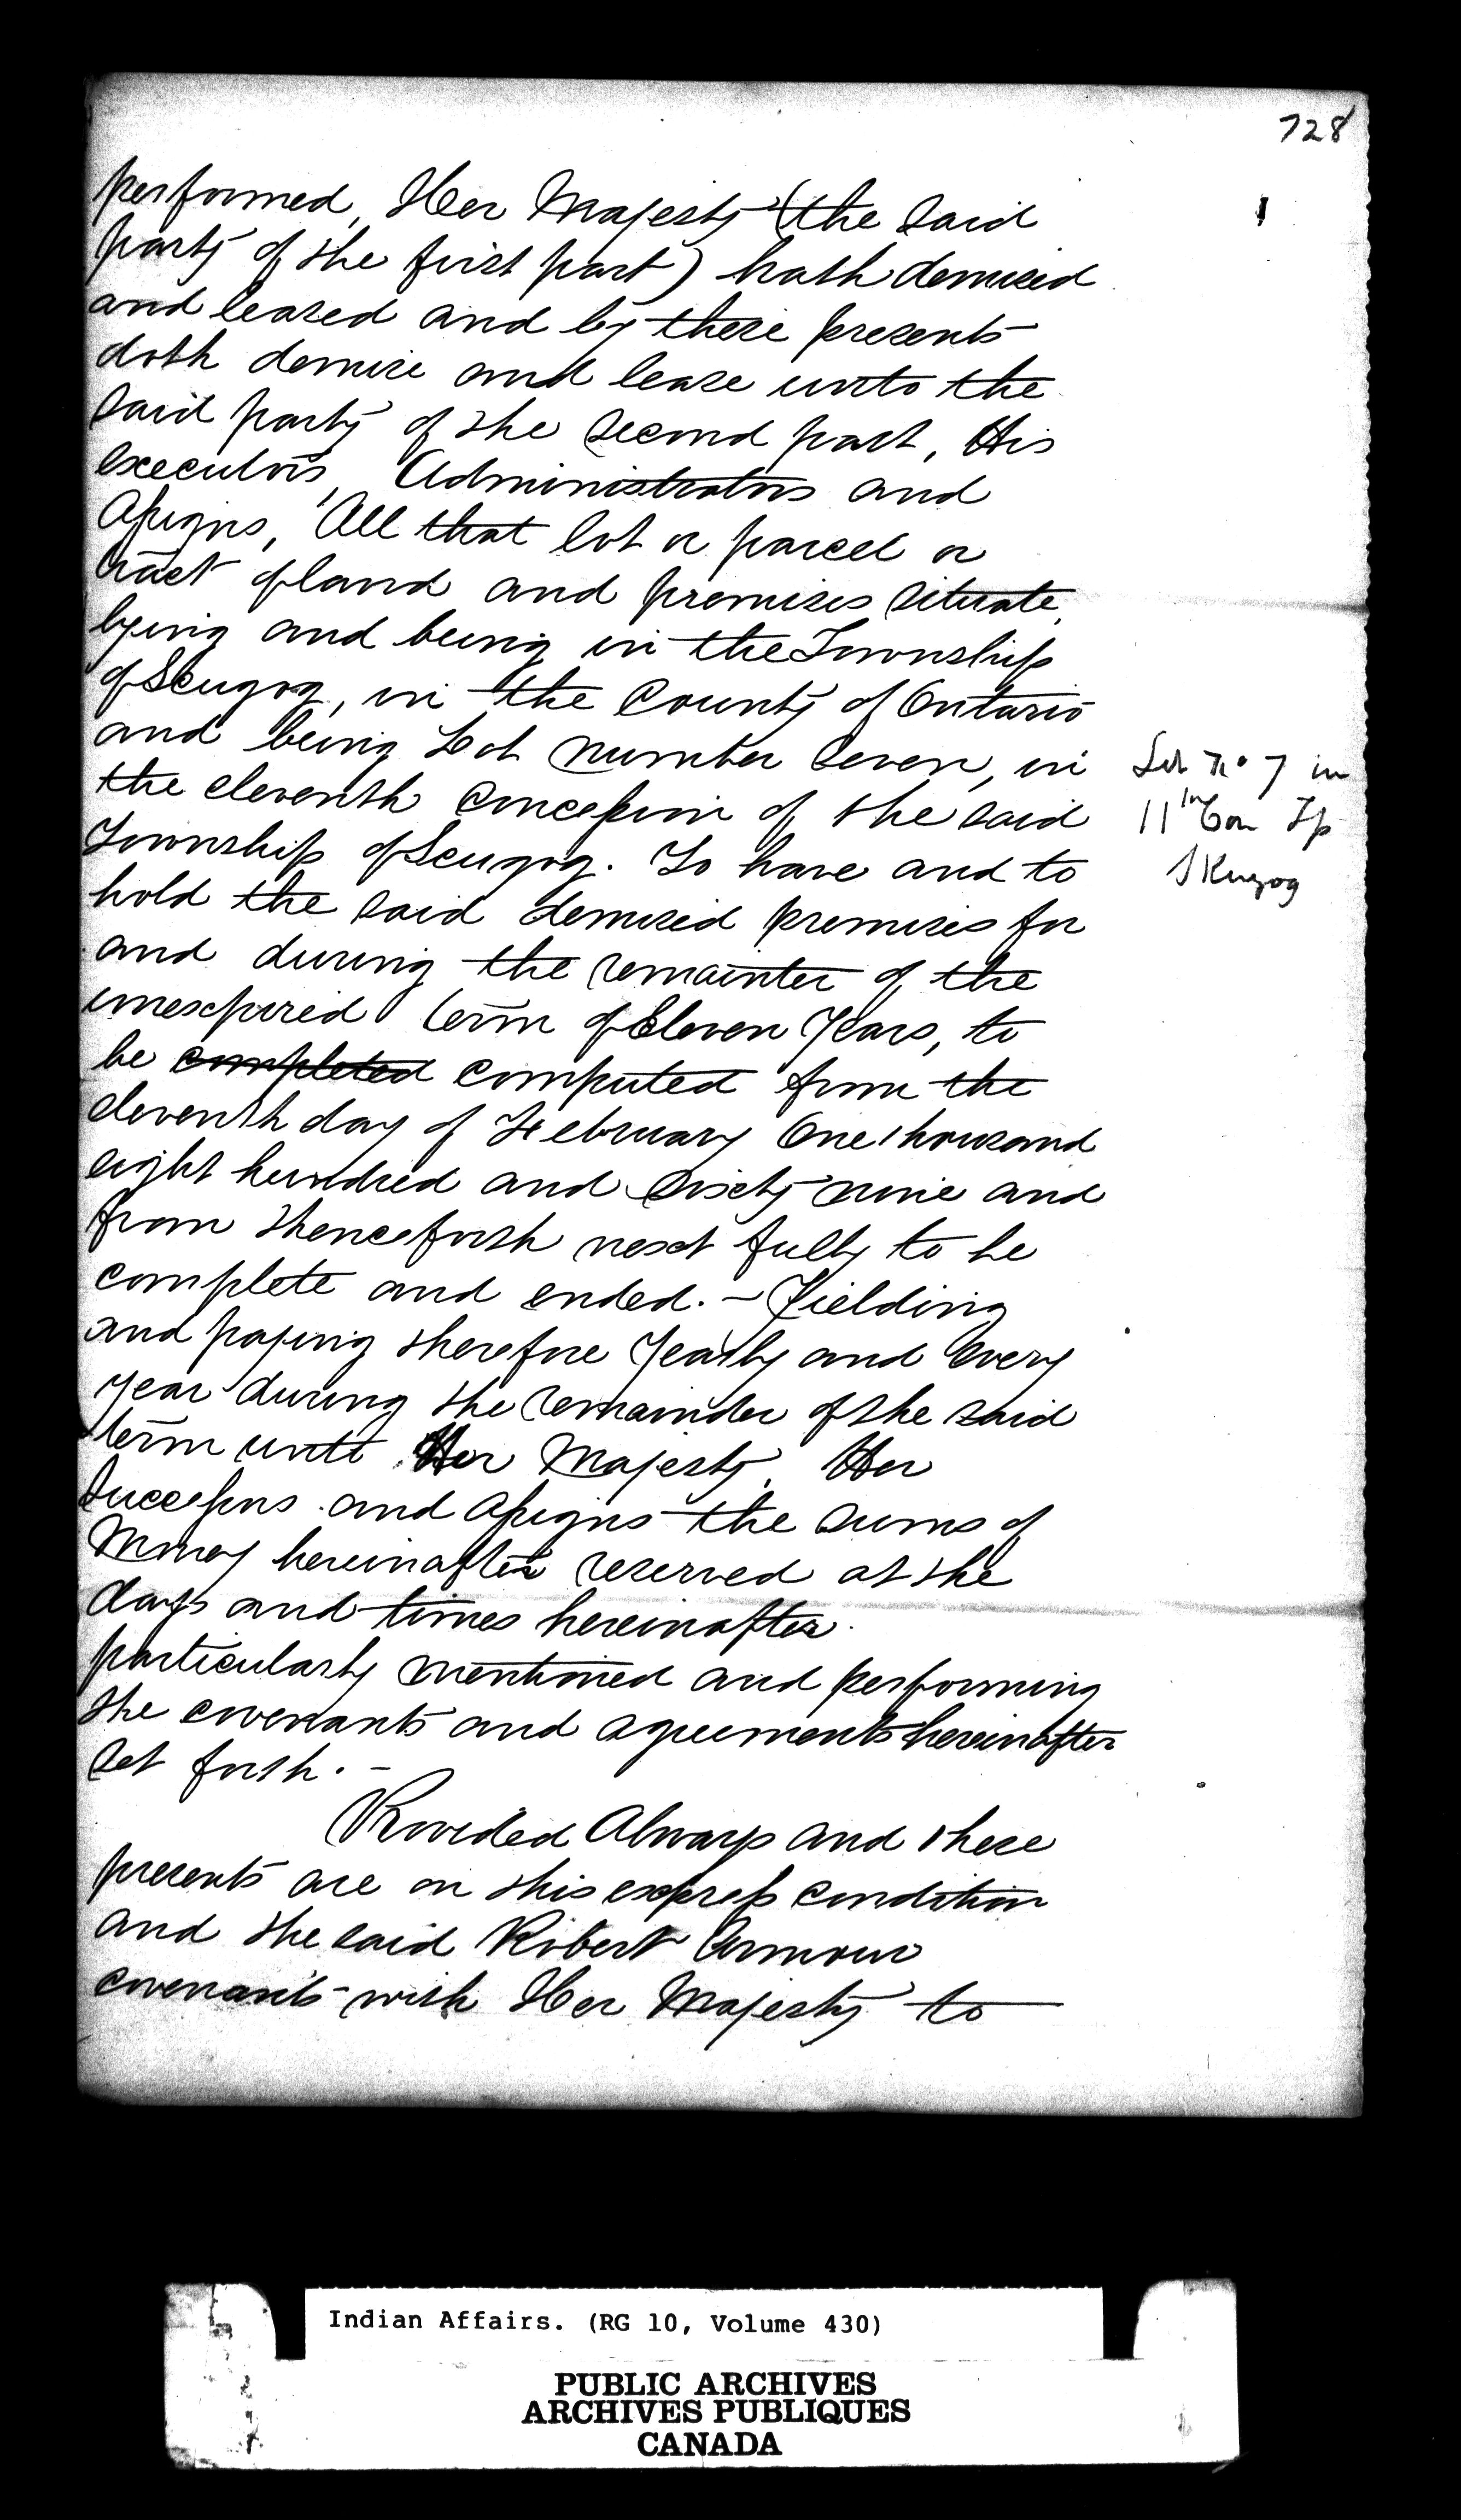 728
performed, Her Majesty (the said
party of the first part) hath demised
and leased and by these presents
doth demise and lease unto the
said party of the second part, His
executors, Administrators and
Assigns, All that lot or parcel or
tract of land and premises situate,
lying and being in the Township
of Scugog, in the County of Ontario
and being Lot number seven, in
the eleventh concession of the said
Township of Scugog. To have and to
hold the said demised premises for
and during the remainter of the
unexpired term of Eleven Years, to
be completed computed from the
eleventh day of February One thousand
eight hundred and sixty nine and
from thenceforth next fully to be
complete and ended. – Yielding
and paying therefore Yearly and Every
year during the remainder of the said
term unto Her Majesty, Her
Successors and Assigns the sums of
Money hereinafter reserved at the
days and times hereinafter
particularly mentioned and performing
the covenants and agreements hereinafter
set forth. –
Provided Always and these
presents are on this express condition
and the said Robert Armour
covenants with Her Majesty to
Lot No 7 in
11th Con Tp
Skugog
Indian Affairs. (RG 10, Volume 430)
PUBLIC ARCHIVES
ARCHIVES PUBLIQUES
CANADA